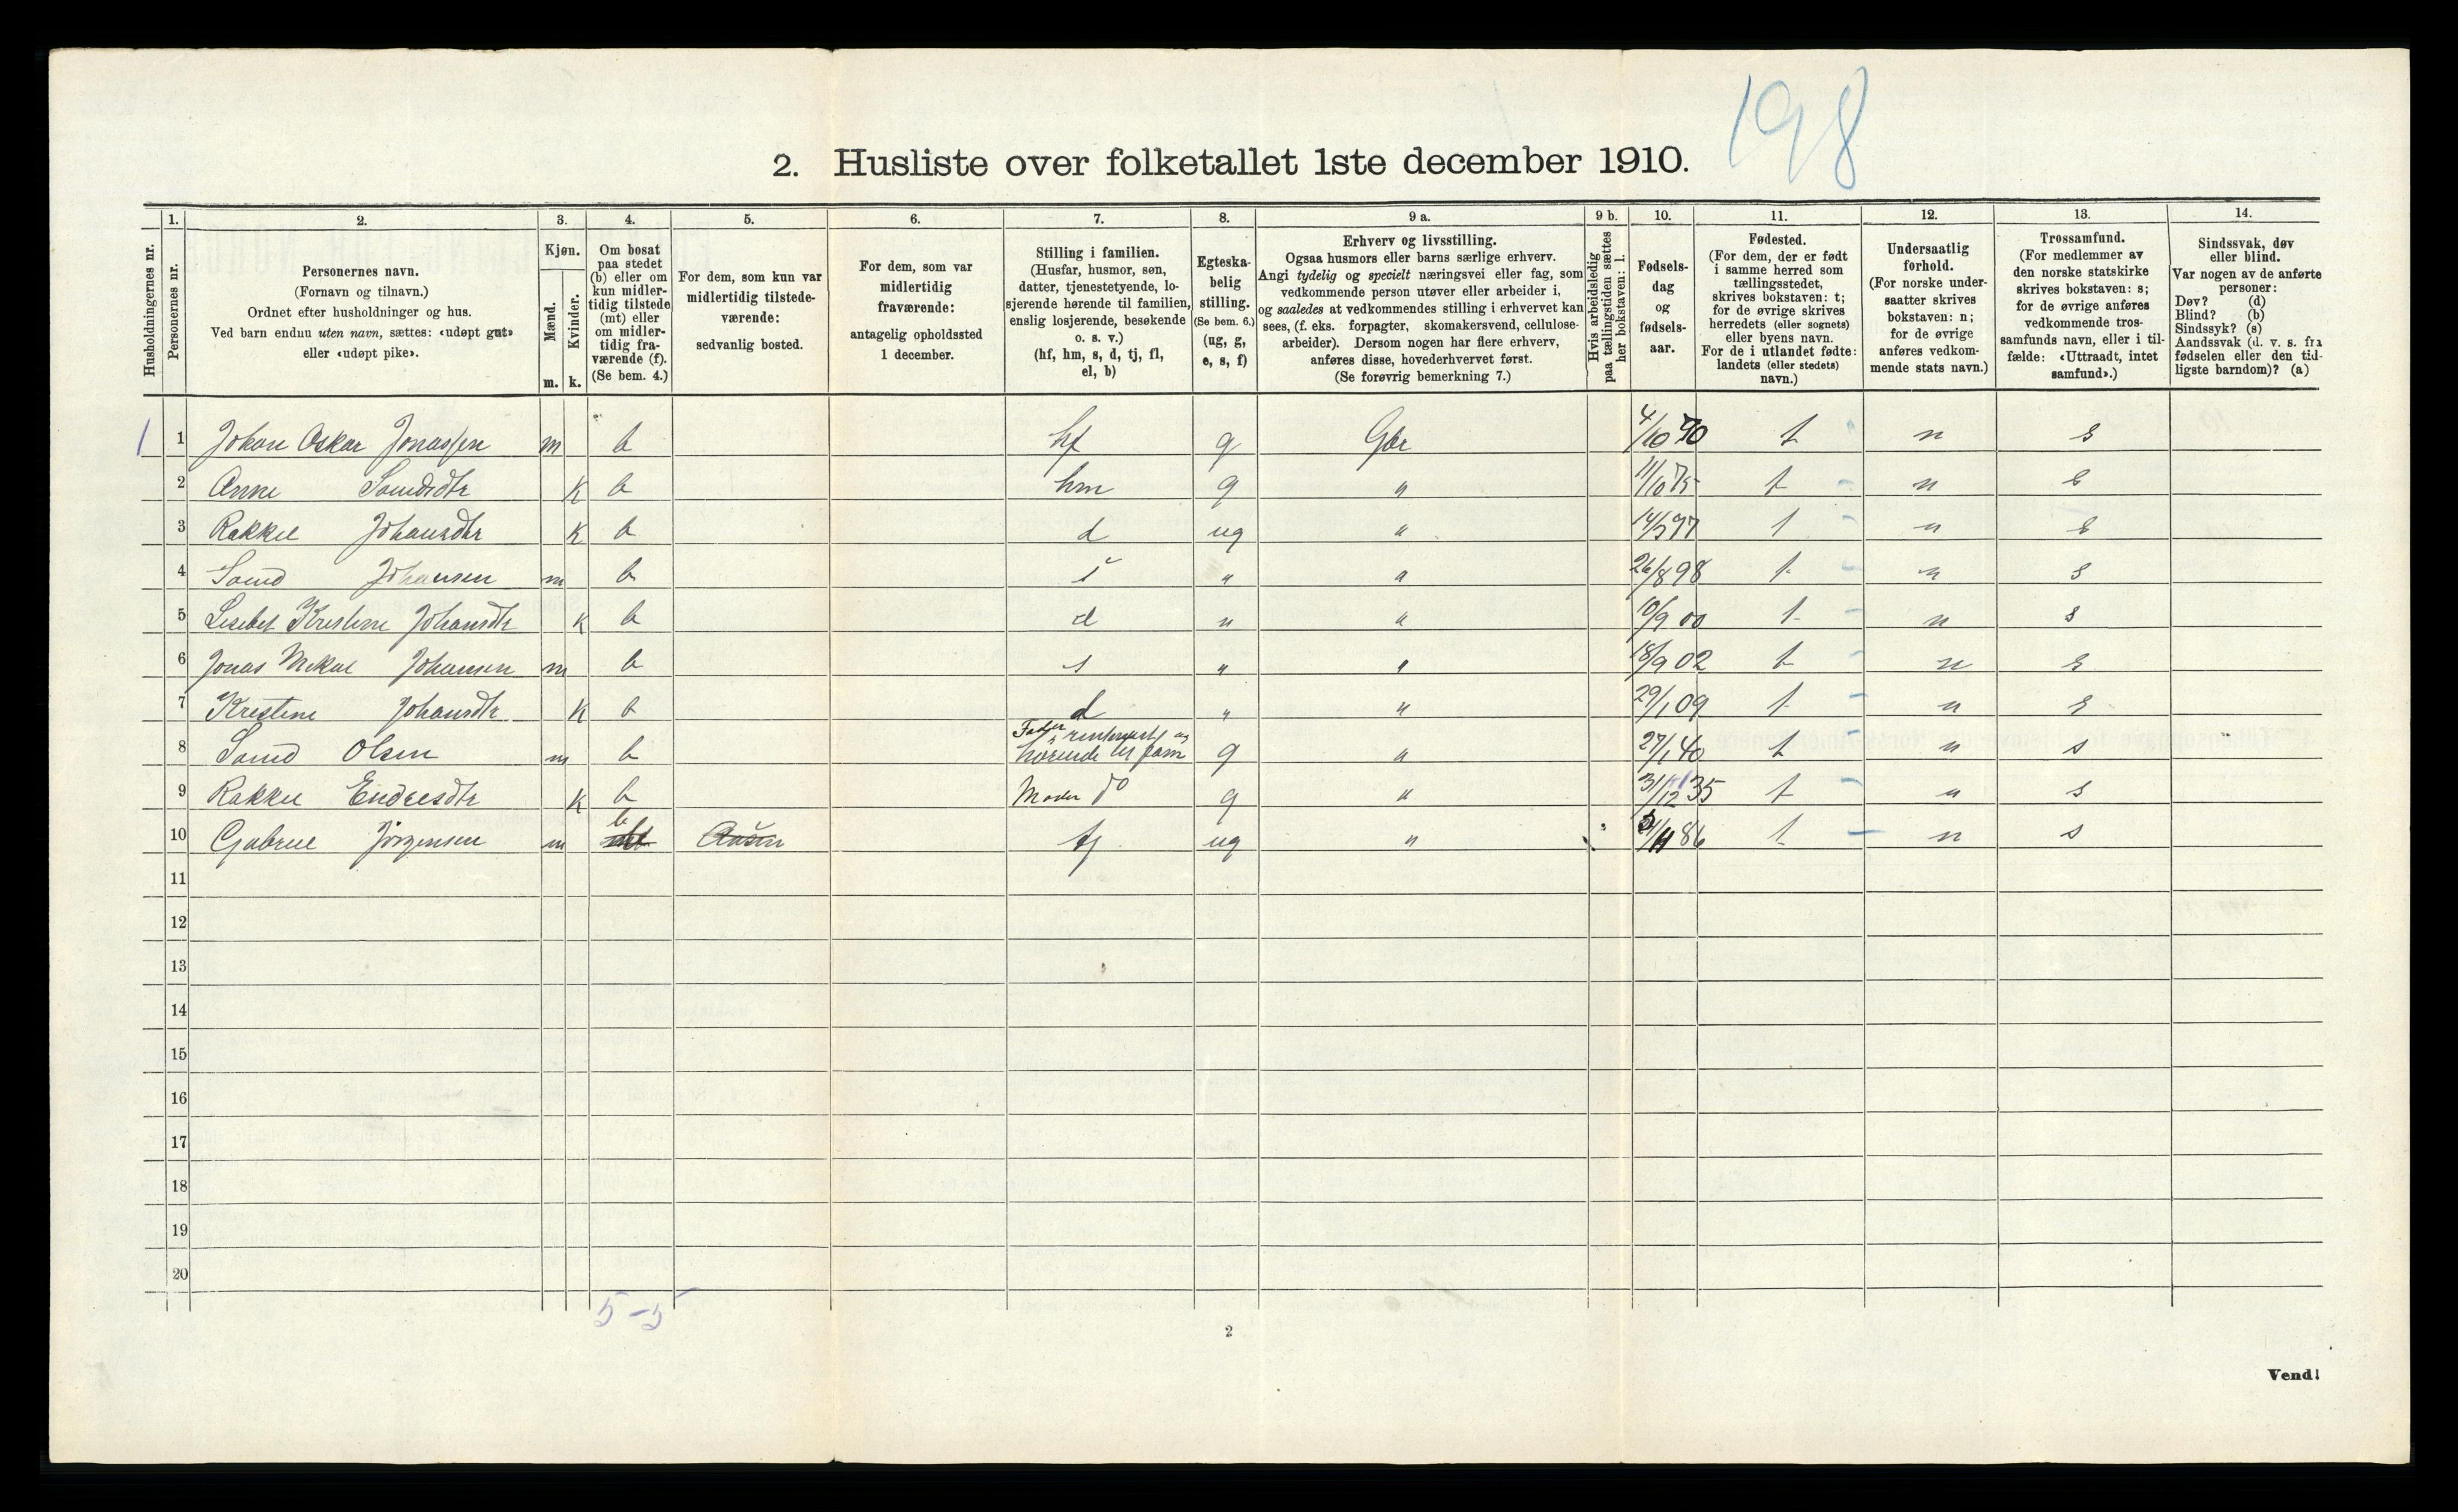 198
2. Husliste over folketallet 1ste december 1910.
Husholdningernes nr.
1. Personernes nr.
2. Personernes navn.
(Fornavn og tilnavn.)
Ordnet efter husholdninger og hus.
Ved barn endnu uten navn, sættes: «udøpt gut»
eller «udøpt pike».
3. Kjøn.
Mænd. Kvinder.
m. k.
4. Om bosat
paa stedet
(b) eller om
kun midler-
tidig tilstede
(mt) eller
om midler-
tidig fra-
værende (f).
(Se bem. 4.)
5. For dem, som kun var
midlertidig tilstede-
værende:
sedvanlig bosted.
6. For dem, som var
midlertidig
fraværende:
antagelig opholdssted
1 december.
7. Stilling i familien.
(Husfar, husmor, søn,
datter, tjenestetyende, lo-
sjerende hørende til familien,
enslig losjerende, besøkende
o. s. v.)
(hf, hm, s, d, tj, fl,
el, b)
8. Egteska-
belig
stilling.
(Se bem. 6.)
(ug, g,
e, s, f)
9 a. Erhverv og livsstilling.
Ogsaa husmors eller barns særlige erhverv.
Angi tydelig og specielt næringsvei eller fag, som
vedkommende person utøver eller arbeider i,
og saaledes at vedkommendes stilling i erhvervet kan
sees, (f. eks. forpagter, skomakersvend, cellulose-
arbeider). Dersom nogen har flere erhverv,
anføres disse, hovederhvervet først.
(Se forøvrig bemerkning 7.)
9 b. Hvis arbeidsledig
paa tællingstiden sættes
her bokstaven: l.
10. Fødsels-
dag
og
fødsels-
aar.
11. Fødested.
(For dem, der er født
i samme herred som
tællingsstedet,
skrives bokstaven: t;
for de øvrige skrives
herredets (eller sognets)
eller byens navn.
For de i utlandet fødte:
landets (eller stedets)
navn.)
12. Undersaatlig
forhold.
(For norske under-
saatter skrives
bokstaven: n;
for de øvrige
anføres vedkom-
mende stats navn.)
13. Trossamfund.
(For medlemmer av
den norske statskirke
skrives bokstaven: s;
for de øvrige anføres
vedkommende tros-
samfunds navn, eller i til-
fælde: «Uttraadt, intet
samfund».)
14. Sindssvak, døv
eller blind.
Var nogen av de anførte
personer:
Døv? (d)
Blind? (b)
Sindssyk? (s)
Aandssvak (d. v. s. fra
fødselen eller den tid-
ligste barndom)? (a)
1 1 Johan Oskar Jonassen m b hf g Gbr 4/10 70 t n s
2 Anne k b hm g " 11/10 75 t n s
3 Rakkel Johansdtr k b d ug " 97 t n s
4 Johansen m b s " " 26/8 98 t n s
5 Lisebet Kristine Johansdtr k b d " " 10/9 00 t n s
6 Jonas Mikal Johansen m b s " " 18/9 02 t n s
7 Kristine Johansdtr k b d " " 29/1 09 t n s
8 Olsen m b Fader hørende til fam g " 27/1 40 t n s
9 Rakkel Endresdtr k b Moder do g " 31/12 35 t n s
10 Gabriel Jörgensen m b tj ug " 86 t n s
11
12
13
14
15
16
17
18
19
20
5-5
2
Vend!